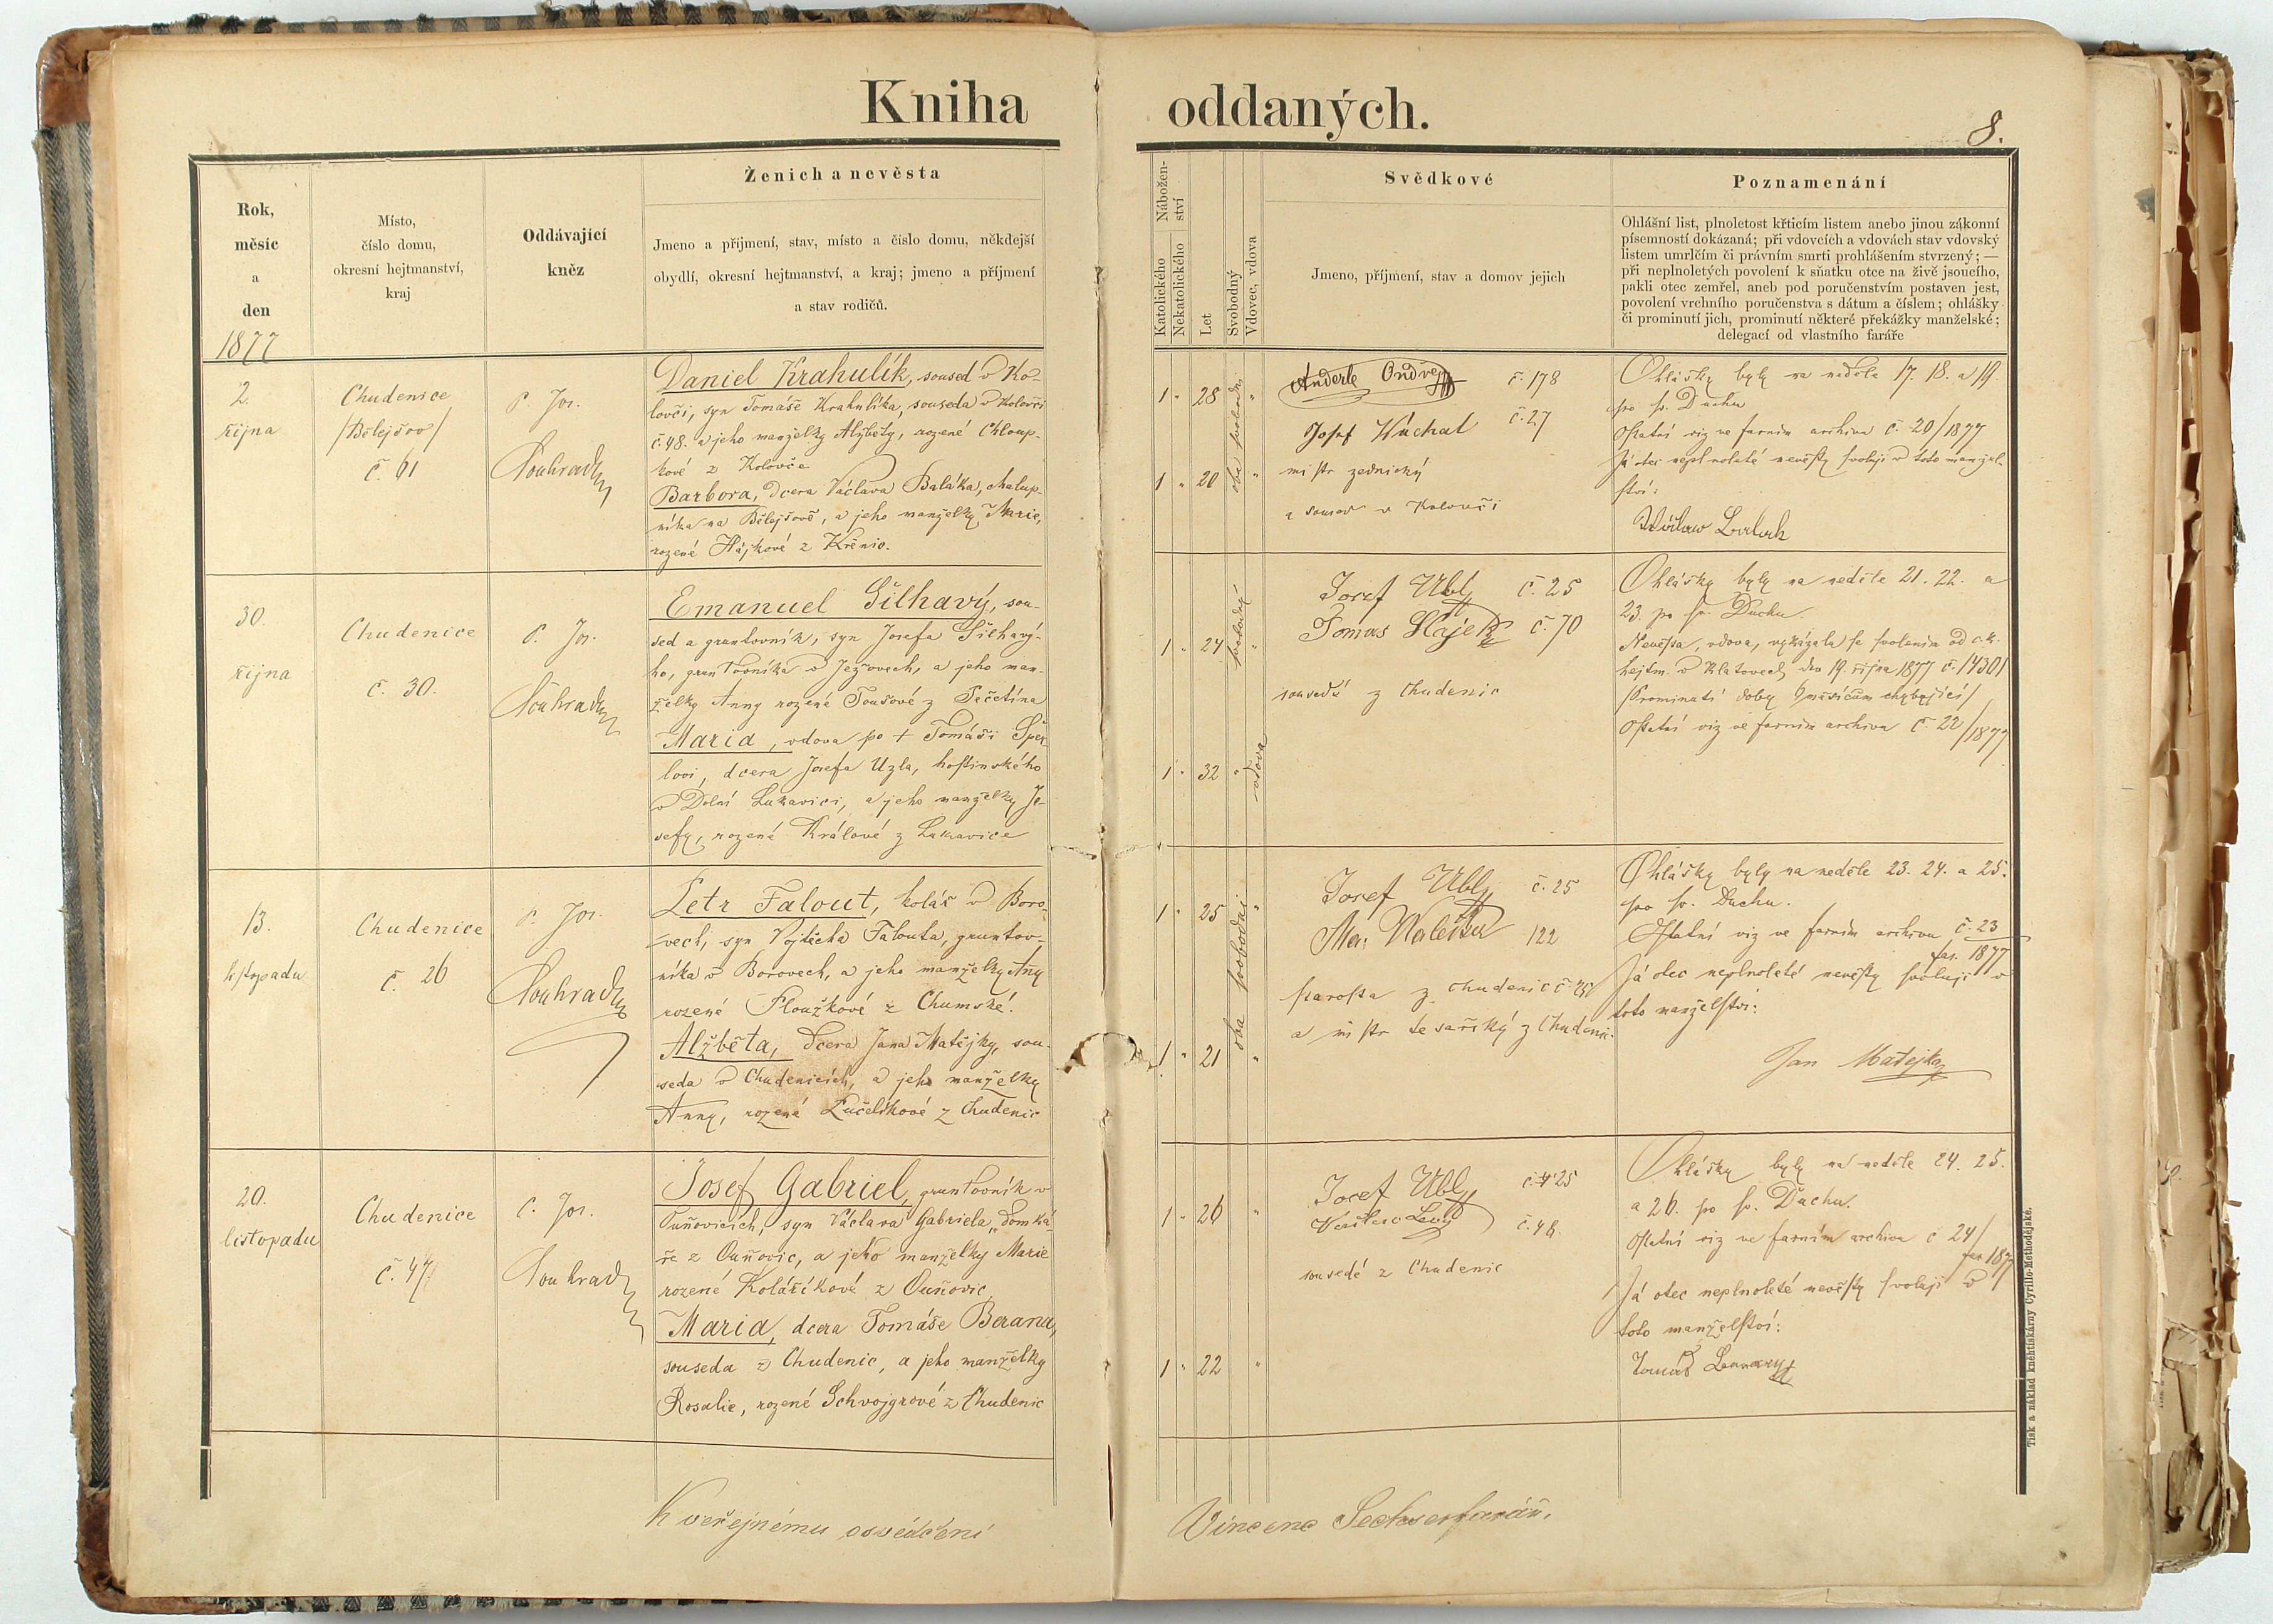 Kniha oddaných.
8.
Rok,
měsíc
a
den
1877
Místo,
číslo domu,
okresní hejtmanství,
kraj
Oddávající
kněz
Ženich a nevěsta
Jmeno a přijmení, stav, místo a číslo domu, někdejší
obydlí, okresní hejtmanství, a kraj; jmeno a příjmení
a stav rodičů.
Nábožen-
ství
Katolického
Nekatolického
Let
Svobodný
Vdovec, vdova
Svědkové
Jmeno, příjmení, stav a domov jejich
Poznamenání
Ohlášní list, plnoletost křticím listem anebo jinou zákonní
písemností dokázaná; při vdovcích a vdovách stav vdovský
listem umrlčím či právním smrti prohlášením stvrzený; —
při neplnoletých povolení k sňatku otce na živě jsoucího,
pakli otec zemřel, aneb pod poručenstvím postaven jest,
povolení vrchního poručenstva s dátum a číslem; ohlášky
či prominutí jich, prominutí některé překážky manželské;
delegací od vlastního faráře
2.
října
Chudenice
/Bělejšov/
č. 61
P. Jos.
Souhrada
Daniel Krahulík, soused v Ko-
lovči, syn Tomáše Krahulíka, souseda v Kolovči
č. 48. a jeho manželky Alžběty, rozené Chloup-
kové z Kolovče
Barbora, dcera Václava Baláka, chalup-
níka na Bělejšově, a jeho manželky Marie,
rozené Hájkové z Křenic.
1 " 28 "
1 " 20 "
oba svobodni
Anderle Ondřej č. 178
Josef Wachal č. 27
mistr zednický
a soused v Kolovči
Ohlášky byly na neděle 17. 18. a 19.
po sv. Duchu
Ostatní viz ve farním archivu č. 20/1877
Já otec neplnoleté nevěsty svoluji v toto manžel-
ství:
30.
října
Chudenice
č. 30.
P. Jos.
Souhrada
Emanuel Šilhavý, sou-
sed a gruntovník, syn Josefa Šilhavý-
ho, gruntovníka v Ježovech, a jeho man-
želky Anny rozené Toušové z Pečetína
Maria, vdova po + Tomáši Šper
lovi, dcera Josefa Uzla, hostinského
v Dolní Lukavici, a jeho manželky Jo-
sefy, rozené Králové z Lukavice
1 " 24 svobodný "
1 " 32 " vdova
Josef Ubl č. 25
Tomas Hájek č. 70
sousedé z Chudenic
Ohlášky byly na neděle 21. 22. a
23. po sv. Duchu.
Nevěsta, vdova, vykázala se svolením od c. k.
hejtm. v Klatovech dno 19. října 1877 č. 14301
/Prominutí doby 6 měsícům chybující/
Ostatní viz ve farním archivu č. 22/1877
13.
listopadu
Chudenice
č. 26
P. Jos.
Souhrada
Petr Falout, kolář v Boro-
vech, syn Vojtěcha Falouta, gruntov-
níka v Borovech, a jeho manželky Anny
rozené Ploužkové z Chumské.
Alžběta, dcera Jana Matějky, sou-
seda v Chudenicích, a jeho manželky
Anny, rozené Lučelíkové z Chudenic
1 " 25 "
1 " 21 "
oba svobodni
Josef Ubl č. 25
122
starosta z Chudenic č. 25
a mistr tesařský z Chudenic.
Ohlášky byly na neděle 23. 24. a 25.
po sv. Duchu.
Ostatní viz ve farním archivu č. 23
fas. 1877
Já otec neplnoleté nevěsty svoluji v
toto manželství:
Jan Matějka
20.
listopadu
Chudenice
č. 47
P. Jos.
Souhrada
Josef Gabriel, gruntovník v
Ouňovicích, syn Václava Gabriela, domká-
ře z Ouňovic, a jeho manželky Marie
rozené Kolaříkové z Ouňovic
Maria, dcera Tomáše Berana,
souseda z Chudenic, a jeho manželky
Rosalie, rozené Schvojgrové z Chudenic
1 " 26 "
1 " 22 "
Josef Ubl č. 25
č. 46.
sousedé z Chudenic
Ohlášky byly na neděle 24. 25.
a 26. po sv. Duchu.
Ostatní viz ve farním archivu č 24/
fas 1877
Já otec neplnoleté nevěsty svoluji v
toto manželství:
K veřejnému osvědčení
Vincenc
Tisk a náklad kněhtiskárny Cyrillo-Methodějské.